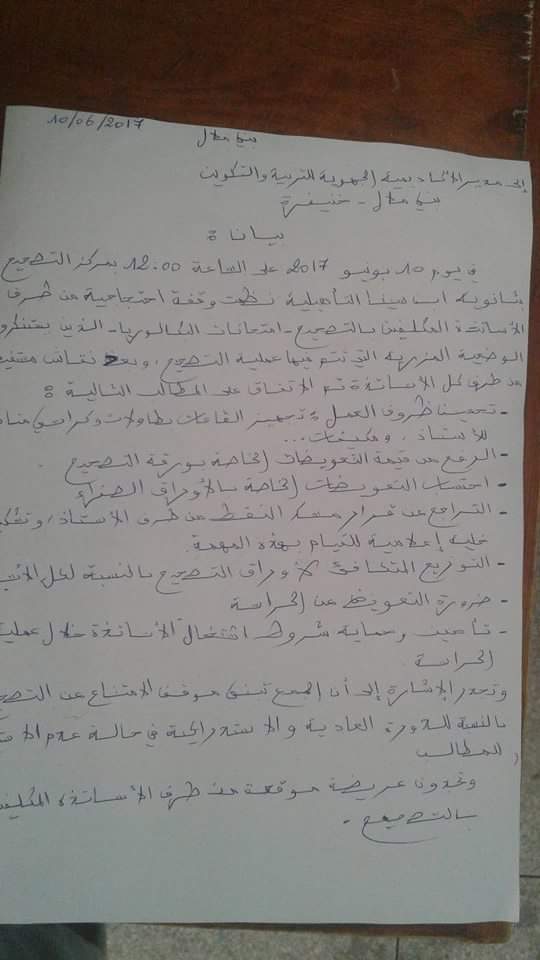 10/06/2017
بني ملال
إلى مدير الأكاديمية الجهوية للتربية والتكوين
بني ملال - خنيفرة
بيان :
في يوم 10 يونيو 2017 على الساعة 12.00 بمركز التصحيح
بثانوية ابن سينا التأهيلية نظمت وقفة احتجاجية من طرف
الأساتذة المكلفين بالتصحيح - امتحانات البكالوريا - الذين يستنكرو
الوضعية المزرية التي تتم فيها عملية التصحيح، وبعد نقاش مستفيـ
من طرف كل الأساتذة تم الاتفاق على المطالب التالية :
- تحسين ظروف العمل : تجهيز القاعات بطاولات وكراسي منا
للأستاذ، ومكيفات...
- الرفع من قيمة التعويضات الخاصة بورقة التصحيح
- احتساب التعويضات الخاصة بالأوراق البيضاء
- التراجع عن قرار مسك النقط من طرف الأستاذ، وتكـ
خلية إعلامية للقيام بهذه المهمة.
- التوزيع المتكافئ لأوراق التصحيح بالنسبة لكل الأسا
- ضرورة التعويض عن الحراسة
- تأمين وحماية شروط اشتغال الأساتذة خلال عملية
الحراسة
وتجدر الإشارة إلى أن الجمع تبنى موقف الامتناع عن التصحـ
بالنسبة للدورة العادية والاستدراكية في حالة عدم الا
للمطالب
وتجدون عريضة موقعة من طرف الأساتذة المكلفيـ
بالتصحيح.